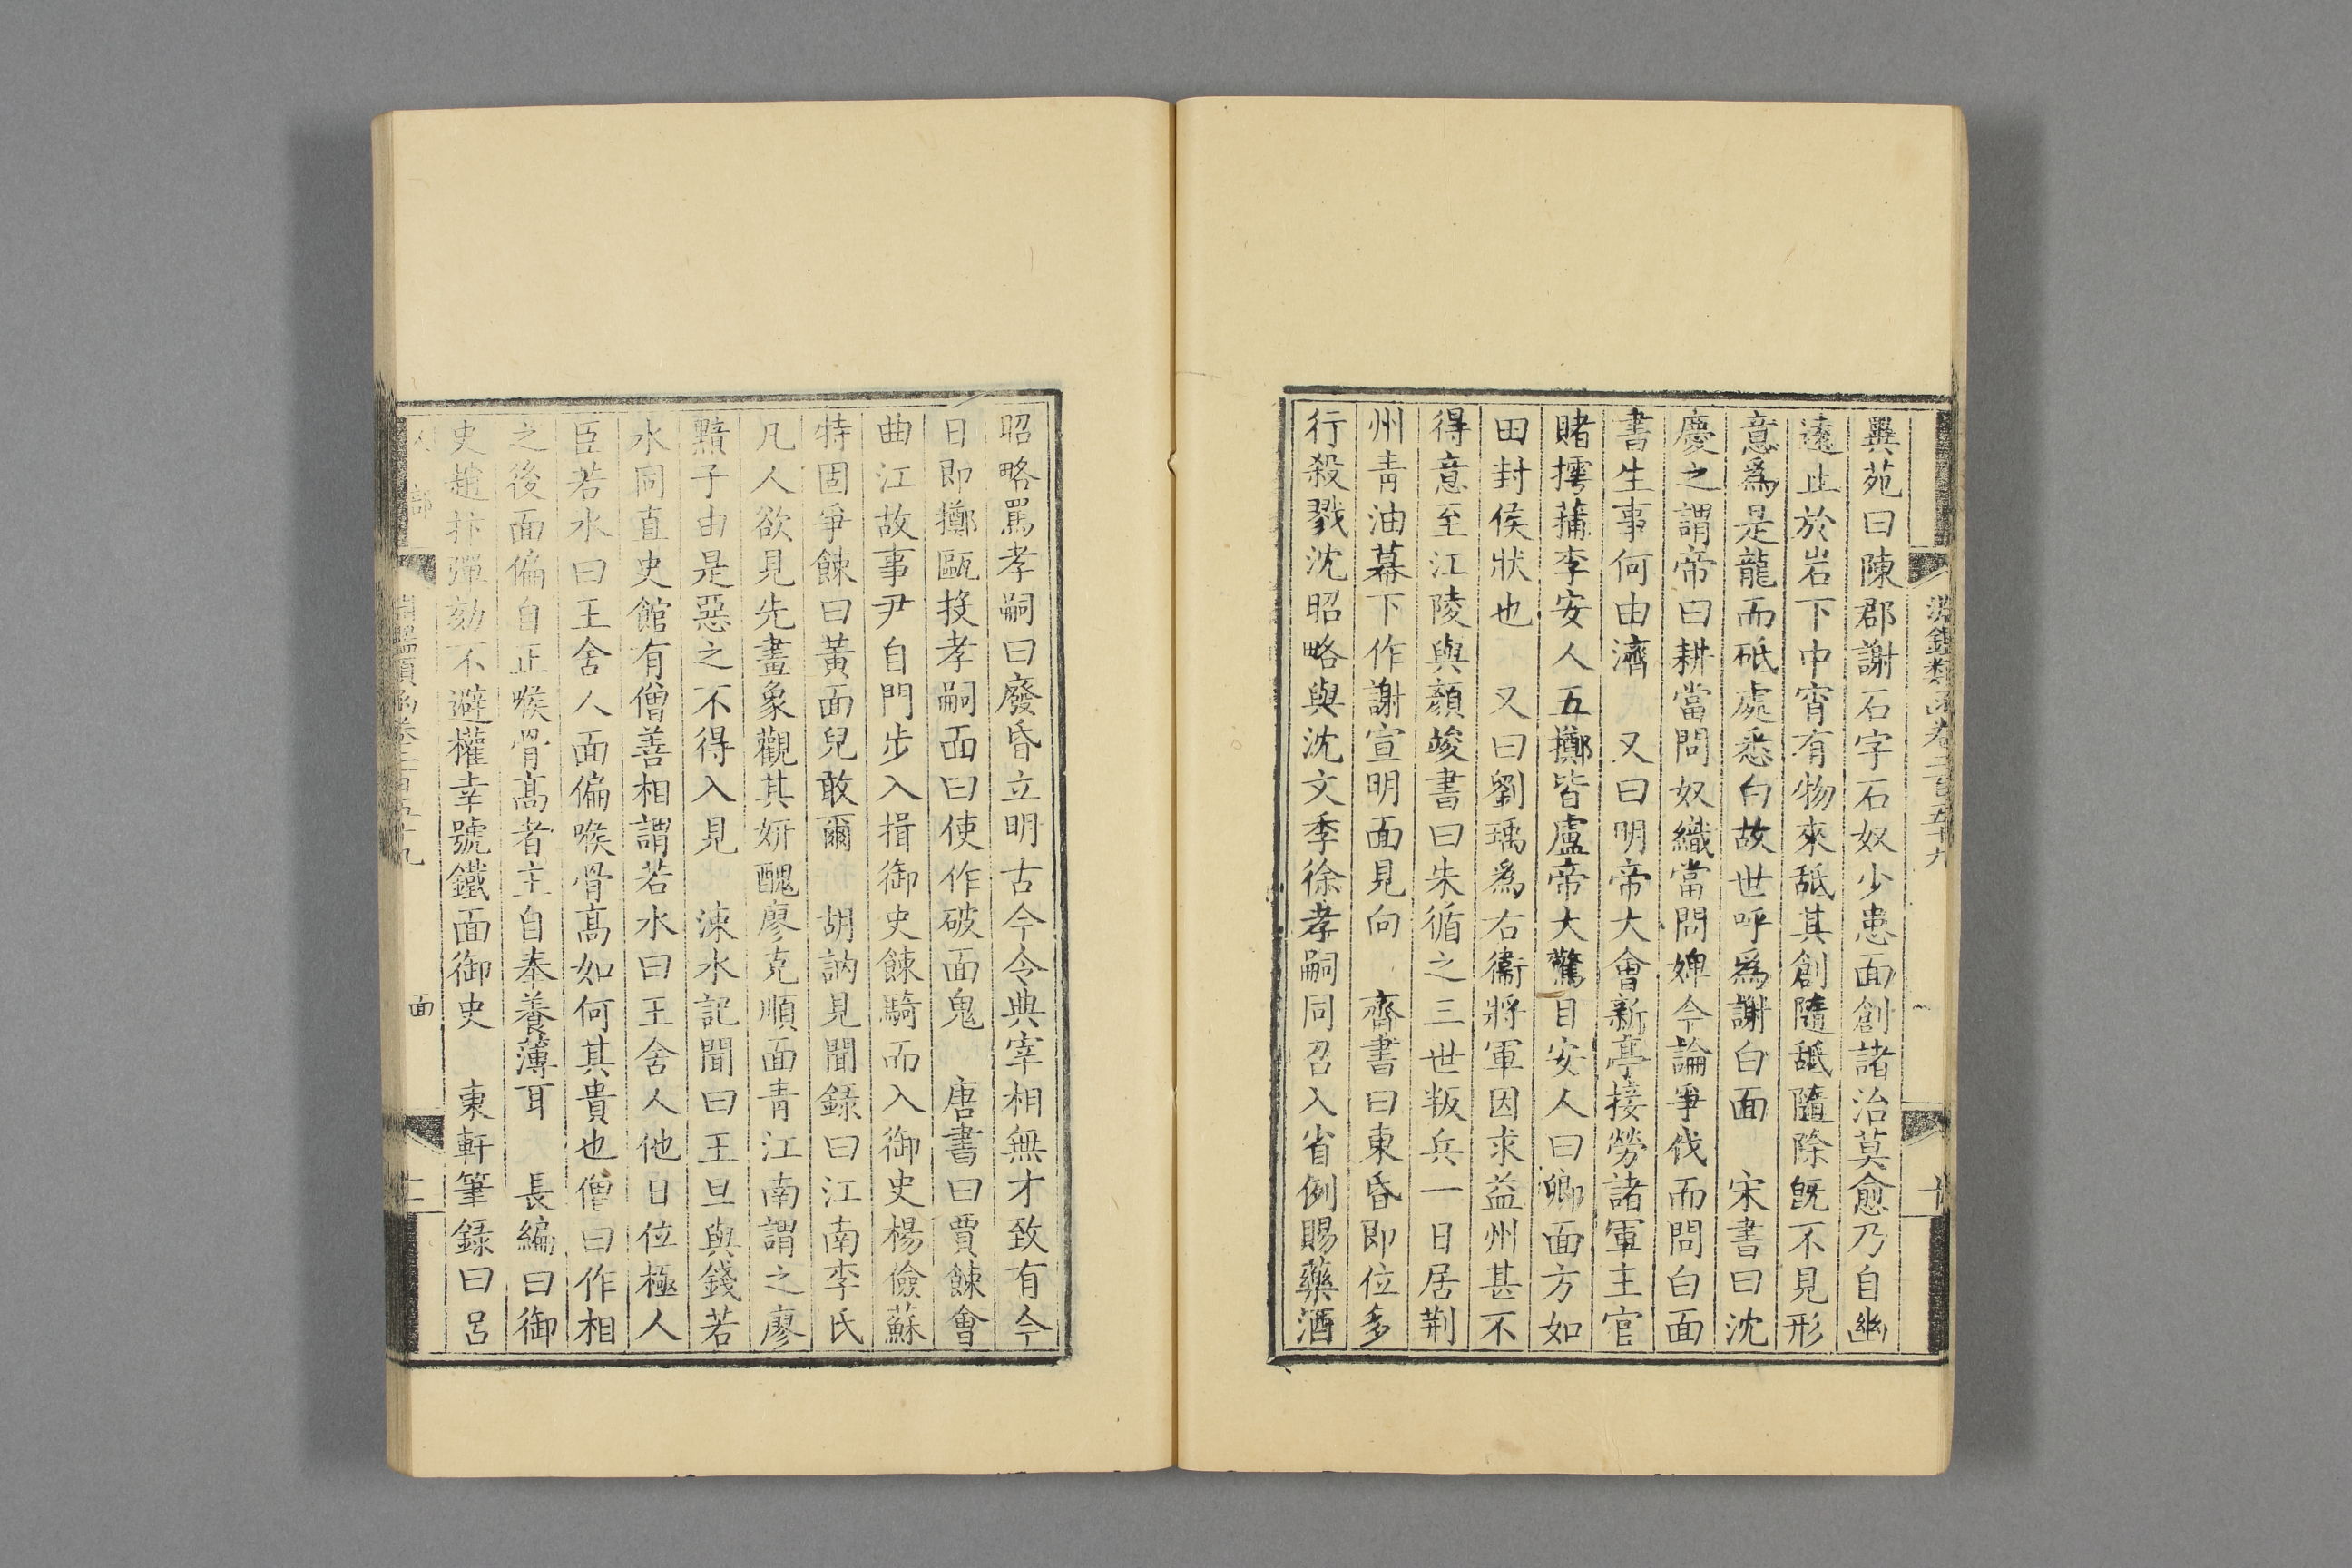 異苑曰陳郡謝石字石奴少患面創諸治莫愈乃自幽
遠止於岩下中宵有物來舐其創隨舐隨除旣不見形
意爲是龍而砥處悉白故世呼爲謝白面　宋書曰沈
慶之謂帝曰耕當問奴織當問婢今論爭伐而問白面
書生事何由濟　又曰明帝大會新亭接勞諸軍主官
賭摴蒱李安人五擲皆盧帝大驚目安人曰卿面方如
田封侯狀也　又曰劉瑀爲右衞將軍因求益州甚不
得意至江陵與顏竣書曰朱循之三世叛兵一日居荆
州靑油幕下作謝宣明面見向　齊書曰東昏即位多
行殺戮沈昭略與沈文季徐孝嗣同召入省例賜藥酒
昭略罵孝嗣曰廢昏立明古今令典宰相無才致有今
日即擲甌投孝嗣面曰使作破面鬼　唐書曰賈餗會
曲江故事尹自門步入揖御史餗騎而入御史楊儉蘇
特固爭餗曰黃面兒敢爾　胡訥見聞錄曰江南李氏
凡人欲見先畫象觀其妍醜廖克順面靑江南謂之廖
黯子由是惡之不得入見　涑水記聞曰王旦與錢若
水同直史館有僧善相謂若水曰王舍人他日位極人
臣若水曰王舍人面偏喉骨高如何其貴也僧曰作相
之後面偏自正喉骨高者主自奉養薄耳　長編曰御
史趙抃彈劾不避權幸號鐵面御史　東軒筆錄曰呂
淵鑑類函卷二百五十九
面